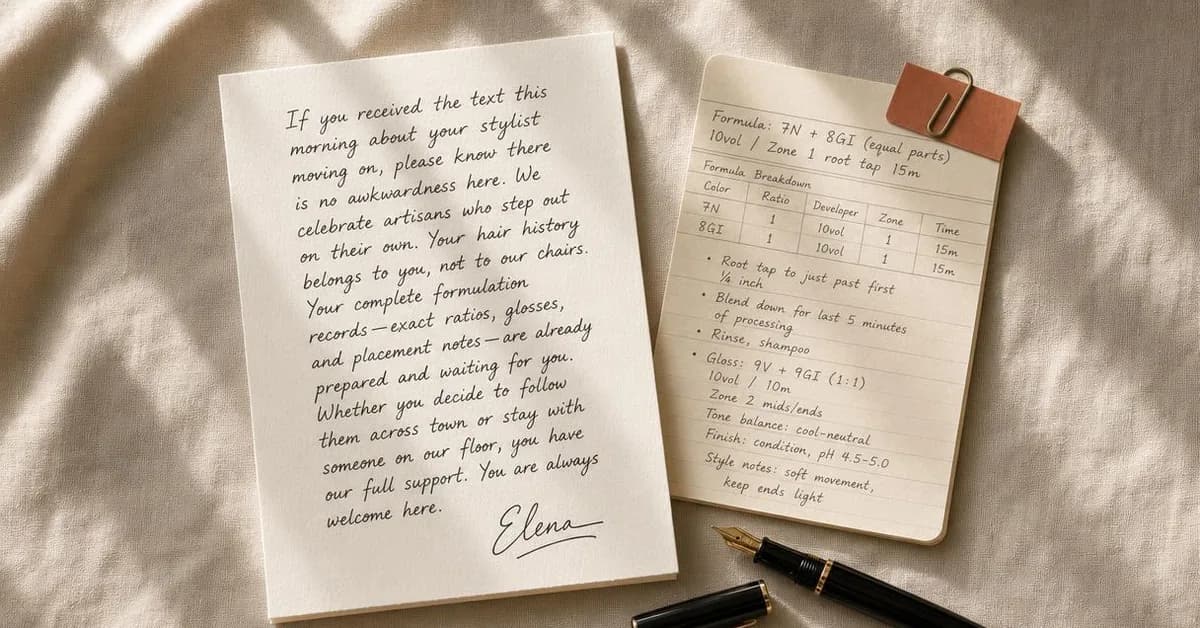 If you received the text this
morning about your stylist
moving on, please know there
is no awkwardness here. We
celebrate artisans who step out
on their own. Your hair history
belongs to you, not to our chairs.
Your complete formulation
records—exact ratios, glosses,
and placement notes—are already
prepared and waiting for you.
Whether you decide to follow
them across town or stay with
someone on our floor, you have
our full support. You are always
welcome here.
Elena
Formula: 7N + 8GI (equal parts)
10vol / Zone 1 root tap 15m
Formula Breakdown
Color Ratio Developer Zone Time
7N 1 10vol 1 15m
8GI 1 10vol 1 15m
• Root tap to just past first
¼ inch
• Blend down for last 5 minutes
of processing
• Rinse, shampoo
• Gloss: 9V + 9GI (1:1)
10vol / 10m
Zone 2 mids/ends
Tone balance: cool-neutral
Finish: condition, pH 4.5-5.0
Style notes: soft movement,
keep ends light